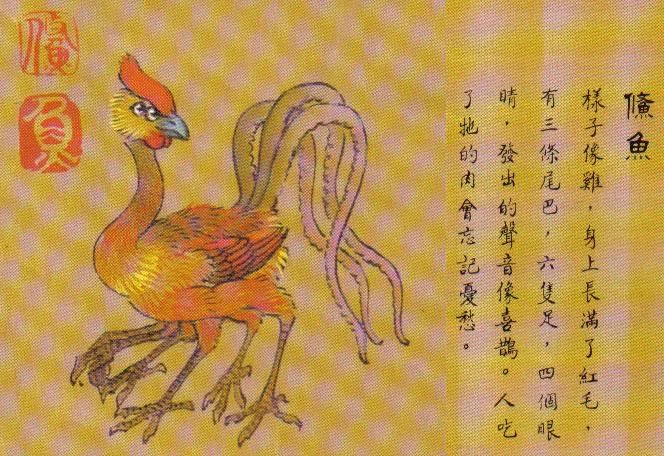 鯈魚
樣子像雞，身上長滿了紅毛，
有三條尾巴，六隻足，四個眼
睛，發出的聲音像喜鵲。人吃
了牠的肉會忘記憂愁。
鯈
魚